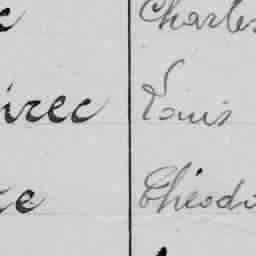 Charles
irec Louis
Théodo